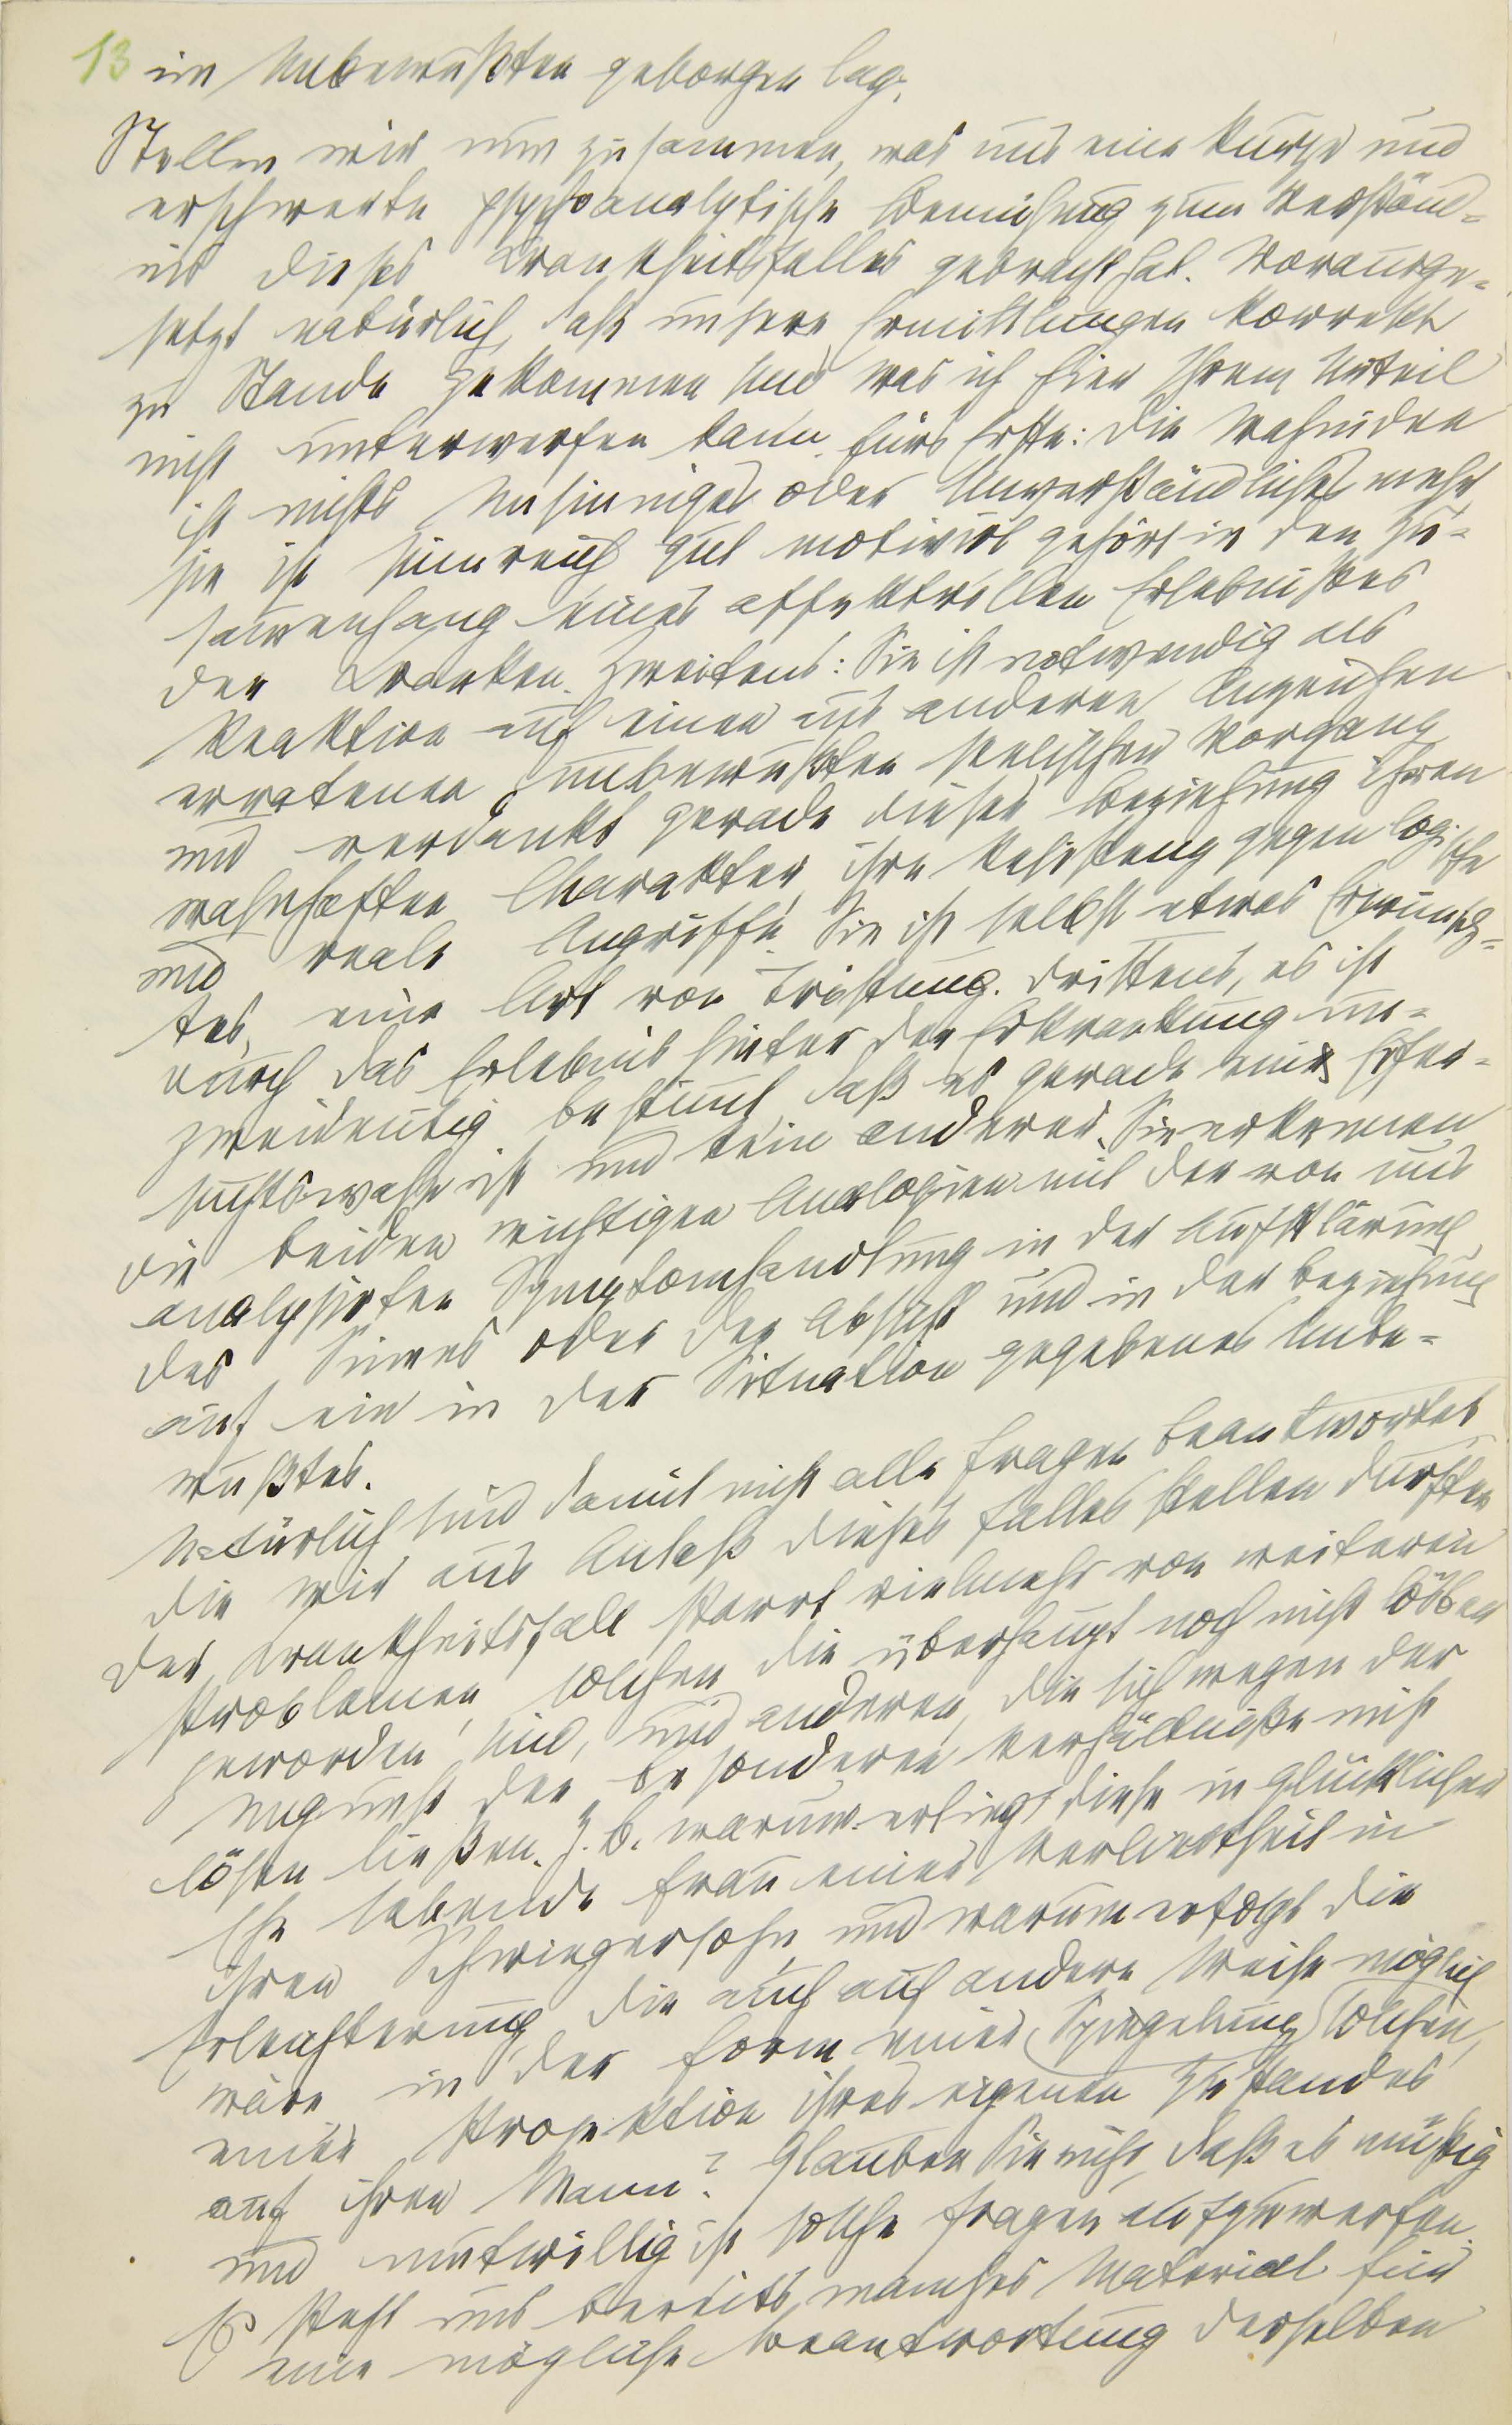 13 im Unbewußten geborgen lag.
Stellen wir nun zusammen, was uns eine kurze und
erschwerte psychoanalytische Bemühung zum Verständ=
nis dieses Krankheitsfalles gebracht hat. Vorausge=
setzt natürlich, daß unsere Ermittlungen korrekt
zu Stande gekommen sind was ich hier Ihrem Urteil
nicht unterwerfen kann. Fürs Erste: Die Wahnidee
ist nichts Unsinniges oder Unverständliches mehr
sie ist sinnreich gut motiviert gehört in den Zu=
samenhang eines affektvollen Erlebnißes
der Kranken. Zweitens: Sie ist notwendig als
Reaktion auf einen aus anderen Anzeichen
erratenen unbewußten seelischen Vorgang
und verdankt gerade dieser Beziehung ihren
wahnhaften Charakter, ihre Resistenz gegen logische
und reale Angriffe. Sie ist selbst etwas Erwünsch=
tes, eine Art von Tröstung. Drittens, es ist
durch das Erlebnis hinter der Erkrankung un=
zweideutig bestimt, daß es gerade ein Eifer=
suchtswahn ist und kein anderer. Sie erkennen
die beiden wichtigen Analogien mit der von uns
analysirten Symptomhandlung in der Aufklärung
des Sinnes oder der Absicht und in der Beziehung
auf ein in der Situation gegebenes Unbe=
wußtes.
Natürlich sind damit nicht alle Fragen beantwortet
die wir aus Anlaß dieses Falles stellen durften
Der Krankheitsfall starrt vielmehr von weiteren
Problemen, solchen die überhaupt noch nicht lösbar
geworden sind, und anderen, die sich wegen der
Ungunst der besonderen Verhältniße nicht
lösen ließen. Z. B. warum erliegt diese in glücklicher
Ehe lebende Frau einer Verliebtheit in
ihren Schwiegersohn, und warum erfolgt die
Erleichterung, die auch auf andere Weise möglich
wäre in der Form einer Spiegelung solchen,
einer Projektion ihres eigenen Zustandes
auf ihren Mann? Glauben Sie nicht, daß es müßig
und mutwillig ist solche Fragen aufzuwerfen.
Es steht uns bereits manches Material für
eine mögliche Beantwortung derselben